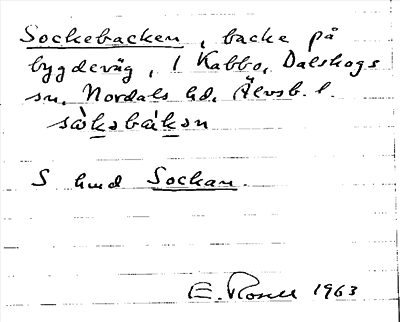 Sockebacken, backe på
bygdeväg, 1 Kabbo, Dalskogs
sn, Nordals hd, Älvsb. l.
såksbàksn
S hmd Sockan.
E. Rosell 1963